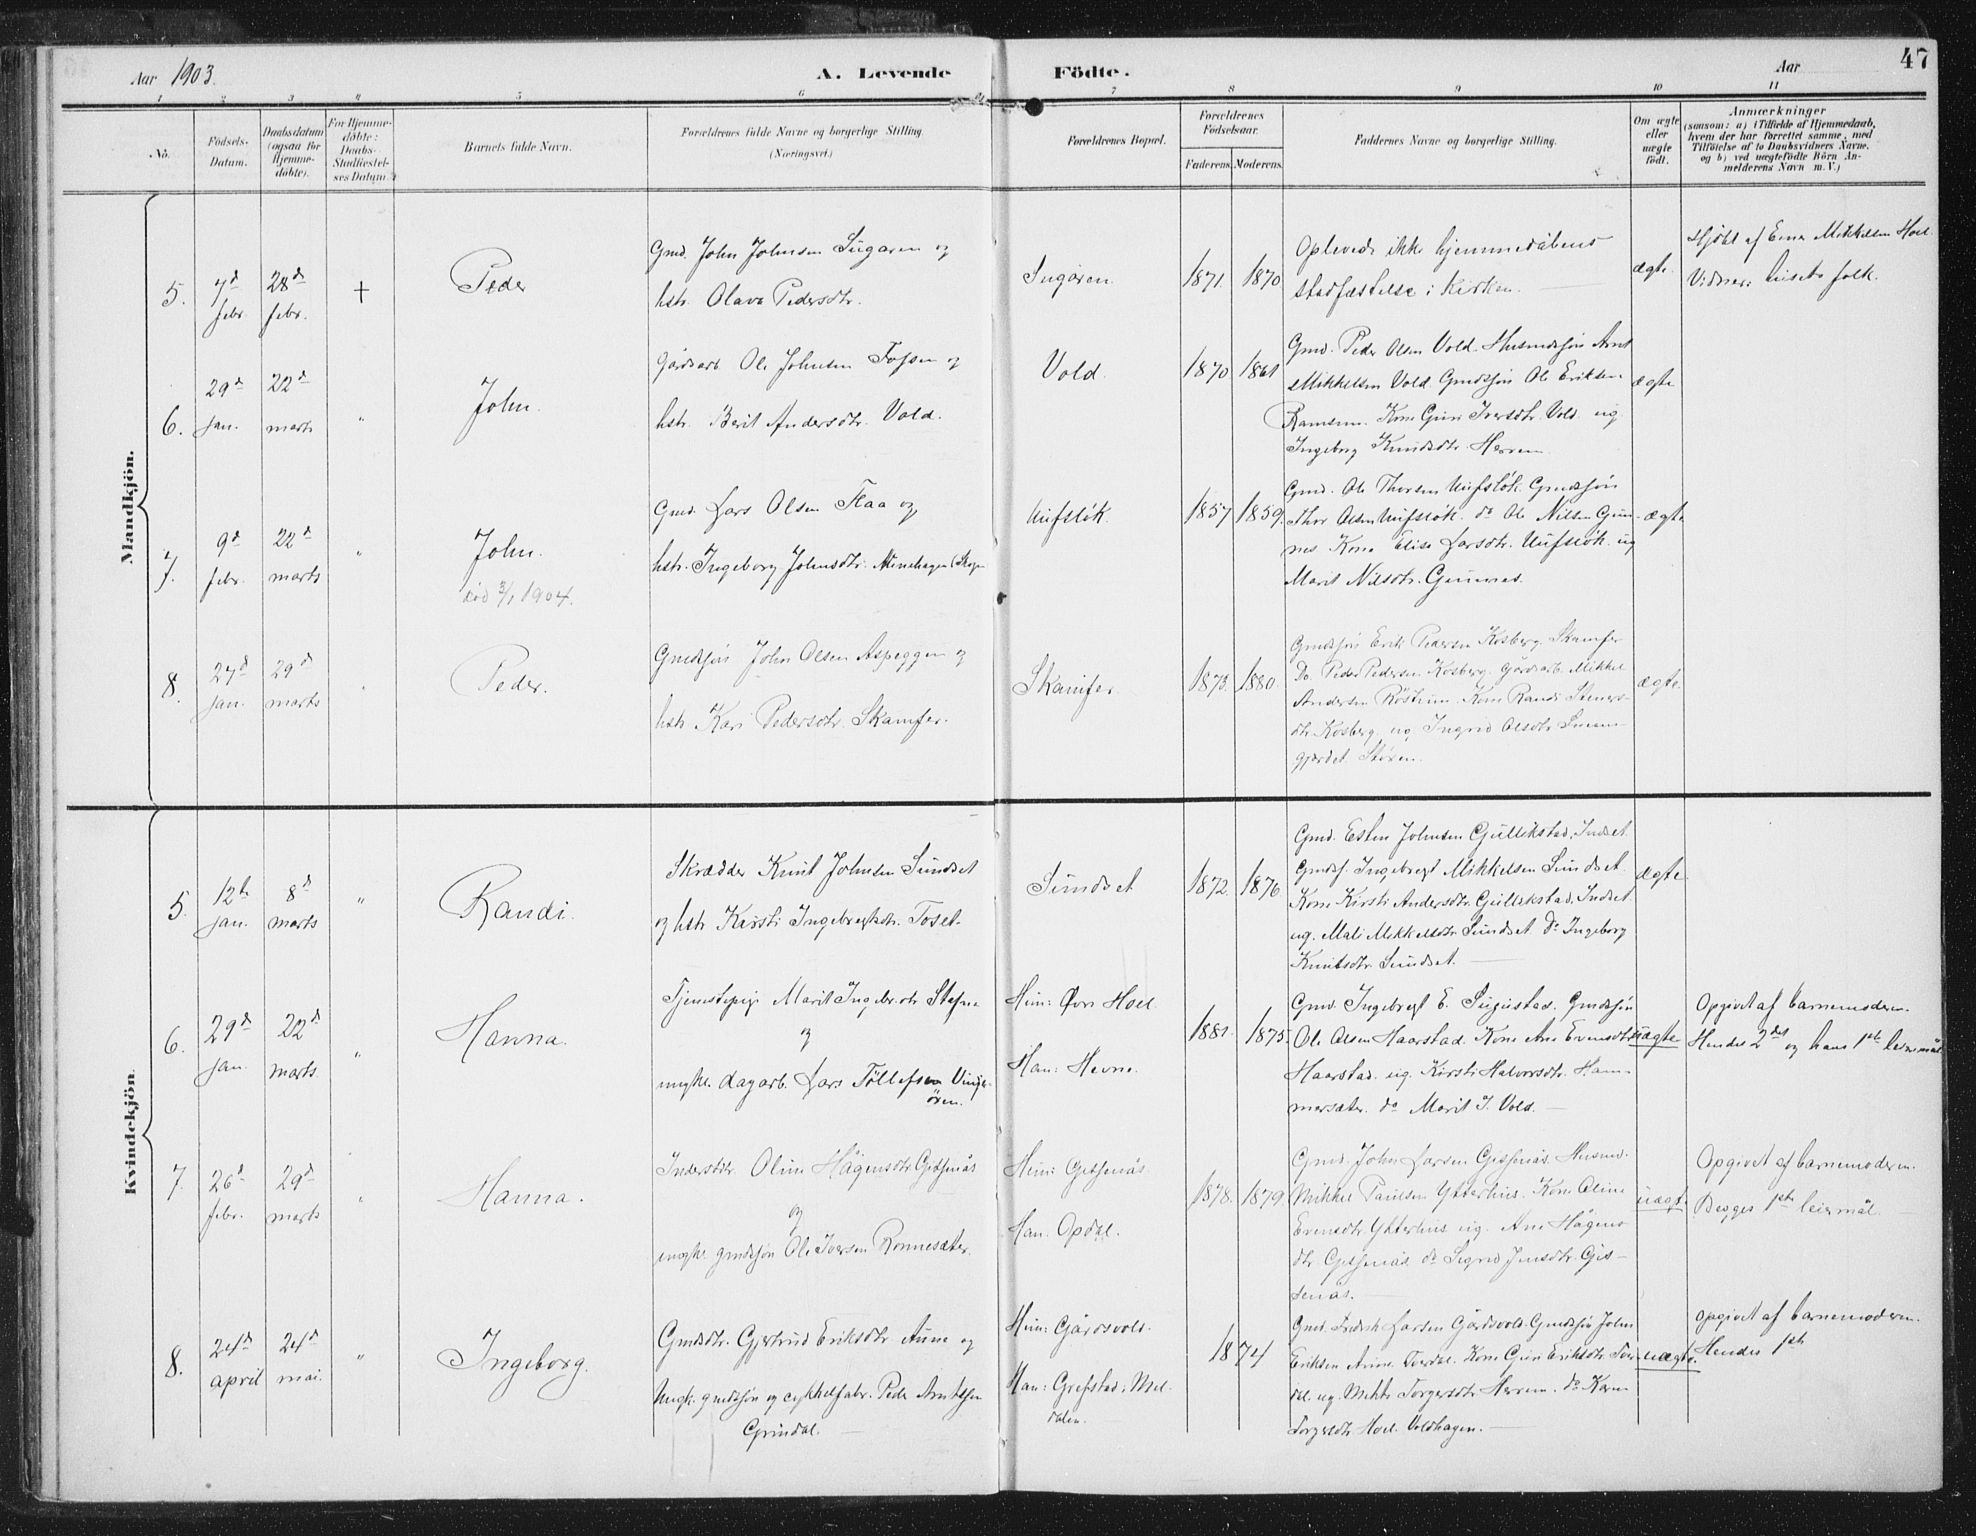 Aar 1903.
A. Levende
Födte.
Aar
47
1 2 3 4 5 6 7 8 9 10 11
No.
Födsels-
Datum.
Daabsdatum
(ogsaa for
Hjemme-
döbte).
For Hjemme-
döbte:
Daabs-
Stadfæstel-
ses Datum.
Barnets fulde Navn.
Forældrenes fulde Navne og borgerlige Stilling
(Næringsvei.)
Forældrenes Bopæl.
Forældrenes
Födselsaar.
Faderens. Moderens.
Faddernes Navne og borgerlige Stilling.
Om ægte
eller
uægte
födt.
Anmærkninger
(saasom: a) i Tilfælde af Hjemmedaab,
hvem der har forrettet samme, med
Tilföielse af to Daabsvidners Navne.
og b) ved uegtefödte Börn An-
melderens Navn m. V.)
Mandkjön.
5.
7d
febr.
28d
febr.
+
Peder
Gmd. John Johnsen Sugaren og
hstr. Olava Pedersdtr.
Sugaren.
1871. 1870
Oplevede ikke hjemmedåbens
stadfæstelse i Kirken.
ægte.
Hjdbt af Ener Mikkelsen Hoel.
Vidner: husets folk.
6.
29d
jan.
22d
marts
"
John.
Gårdarb. Ole Johnsen Fossen og
hstr. Berit Andersdtr. Vold.
Vold.
1870 1861
Gmd. Peder Olsen Vold. Husmdsjøn Arnt
Mikkelsen Vold. Gmdsjøn Ole Eriksen
Ramsem. Kone Guri Iversdtr. Vold. ug
Ingeborg Knudsdtr. Herrem.
ægte
7.
9d
febr.
22d
marts
"
John.
död 3/1 1904.
Gmd. Lars Olsen Flaa og
hstr. Ingeborg Johnsdtr.
1857 1859.
Gmd. Ole Thorsen
Thor Olsen do Ole Nilsen Gun-
nes Kone Elise Larsdtr. ug
Marit Nilsdtr. Gunnes.
ægte
8.
27d
jan.
29d
marts
"
Peder.
Gmdsjøn John Olsen Aspeggen og
hstr. Kari Pedersdtr. Skamfer.
Skamfer.
1873. 1880
Gmdsjøn Erik Pedersen Kosberg. Skamfer
Do. Peder Pedersen Kosberg. Gårdsarb. Mikkel
Andersen Röstum. Kone Randi Steners-
dtr. Kosberg. ug. Ingrid Olsdtr.
gjærdet. Støren.
ægte.
Kvindekjön.
5.
12te
jan.
8d
marts
"
Randi.
Skrædder Knut Johnsen Sundset
og hstr. Kirsti Ingebregtsdtr. Toset.
Sundset
1872. 1876
Gmd. Esten Johnsen Gullikstad, Indset.
Gmdsj. Ingebregt Mikkelsen Sundset.
Kone Kirsti Andersdtr. Gullikstad, Indset
ug. Mali Mikkelsdtr. Sundset. Do Ingeborg
Knutsdtr. Sundset.
ægte
6.
29d
jan.
22d
marts.
"
Hanna.
Tjenestepige Marit Ingebr.dtr. Stefne
og
ungkl. dagarb. Lars Tøllefsen Vinge-
ören.
Hun: Øvre Hoel.
Han: Hevne.
1881. 1875.
Gmd. Ingebregt E. Sugustad. Gmdsjøn
Ole Olsen Haarstad. Kone Ane Evensdtr.
Haarstad. ug. Kirsti Halvorsdtr. Ham-
mersæter. do Marit I. Vold.
uægte
Opgivet af barnemoderen.
Hendes 2det og hans 1ste leiermål.
7.
26d
febr.
29d
marts
"
Hanna.
Inderstdtr. Oline Hågensdtr. Gisnås
og
ungkl. gmdsjøn Ole Iversen Ronnesæter.
Hun: Gisnås.
Han: Opdal.
1878. 1879.
Gmd. John Larsen Gisnås. Husmd.
Mikkel Paulsen Ytterhus. Kone Oline
Evensdtr. Ytterhus ug. Ane Hågens-
dtr. Gisnås do Sigrid Jensdtr. Gis-
nås.
uægte
Opgivet af barnemoderen.
Begges 1ste leiermål.
8.
24d
april
24d
mai.
"
Ingeborg.
Gmdsdtr. Gjertrud Eriksdtr. Aune og
Ungk. gmdsjøn og cykkelfabr. Peder Arntsen
Grindal.
Hun: Gårdsvold.
Han: Grefstad, Mel-
dalen.
1874
Gmd. Fredrik Larsen Gårdsvold. Gmdsjøn John
Eriksen Aune. Kone Guri Eriksdtr.
ug. Torgersdtr. Herrem. do Karen
Torgersdtr. Hoel. Voldhagen.
uægte.
Opgivet af barnemoderen.
Hendes 1ste